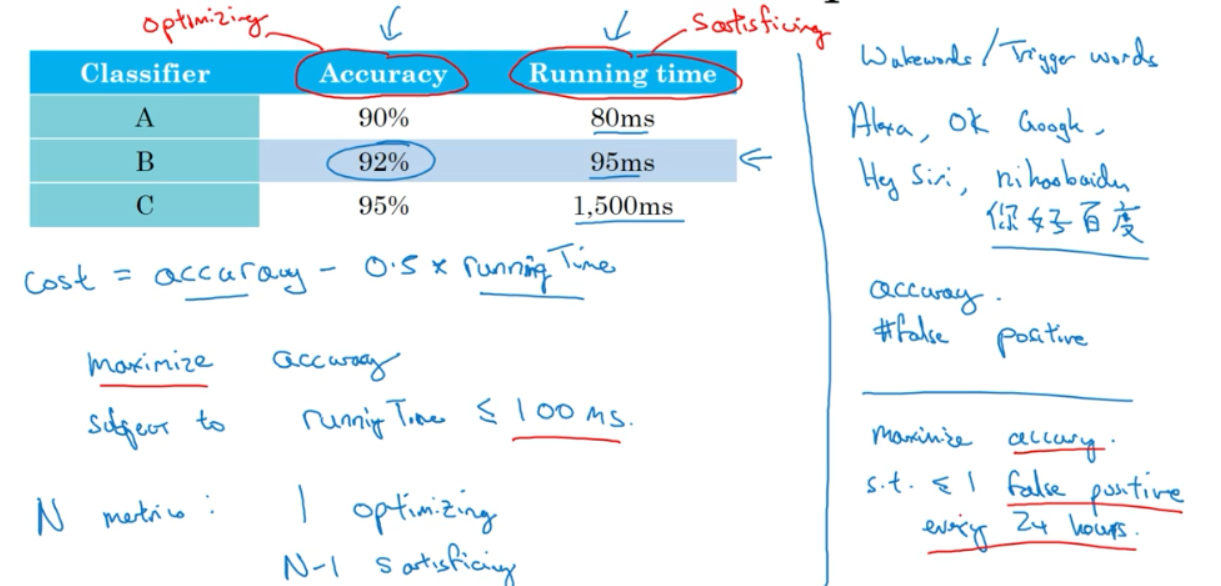 optimizing
Satisficing
Classifier Accuracy Running time
A 90% 80ms
B 92% 95ms
C 95% 1,500ms
Cost = accuracy - 0.5 x running Time
maximize accuracy
subject to running Time ≤ 100 ms.
N metrics: 1 optimizing
N-1 satisficing
Wakewords / Trigger words
Alexa, OK Google,
Hey Siri, nihaobaidu
你好百度
accuracy.
#false positive
maximize accuracy.
s.t. ≤ 1 false positive
every 24 hours.